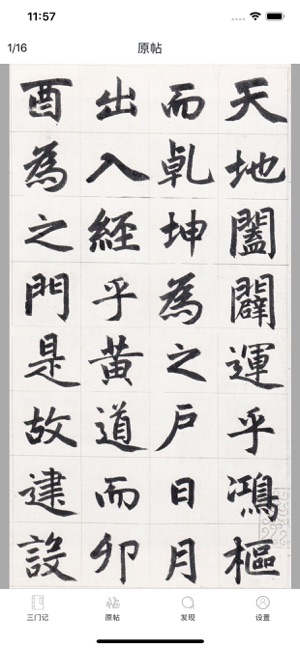 11:57
1/16
原帖
天地闔闢運乎鴻樞
而乹坤為之戶日月
出入經乎黄道而卯
酉為之門是故建設
三门记
原帖
发现
设置